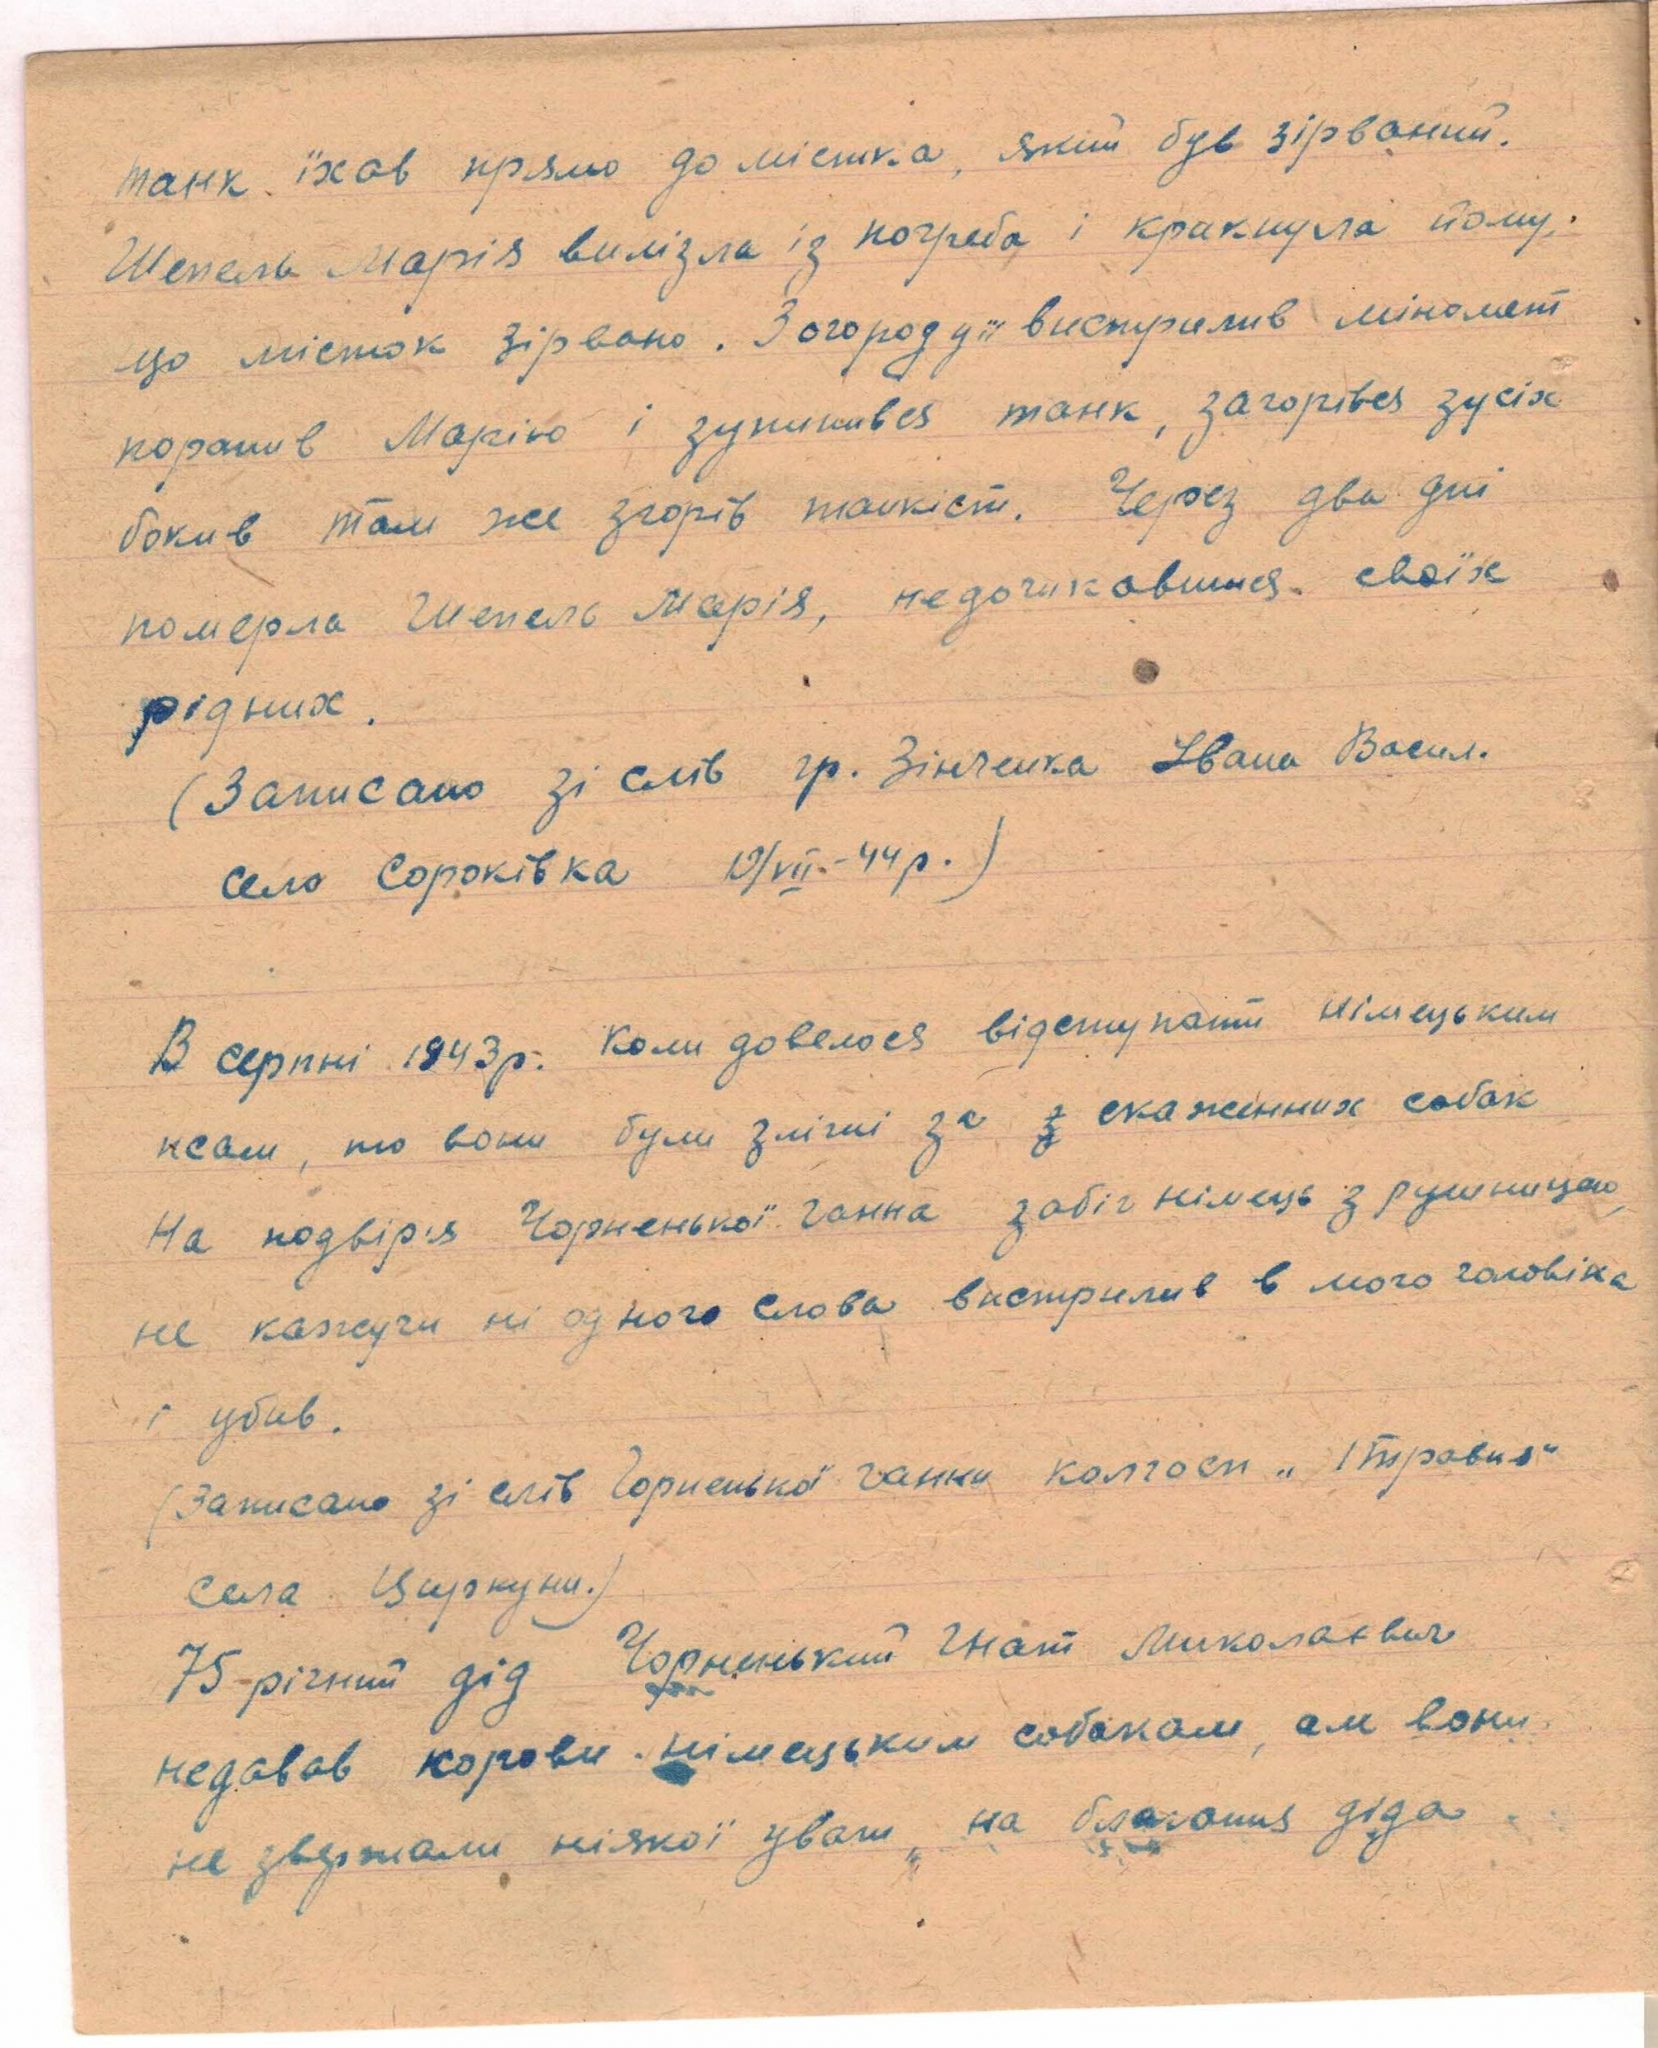 танк їхав прямо до містка, який був зірваний.
Шепель Марія вилізла із погреба і крикнула йому,
що місток зірвано. З огороду вистрилив міномет
поранив Марію і зупинився танк, загорівся зусіх
бокив там же згорів танкіст. Через два дні
померла Шепель Марія, недочикавшися своїх
рідних.
(Записано зі слів гр. Зінченка Івана Васил.
село Сороківка /VII-44р.)
В серпні 1943р. коли довелося відступати німецьким
псам, то вони були зліші за скаженних собак
На подвір'я Чорненької Ганна забіг німець з рушницею,
не кажучи ні одного слова вистрилив в мого чоловіка
і убив.
(Записано зі слів Чорненької Ганни колгосп „1 Травня"
села Циркуни.)
75-річний дід Чорненький Гнат Миколаєвич
недавав корови німецьким собакам, але вони
не звертали ніякої уваги на благання діда